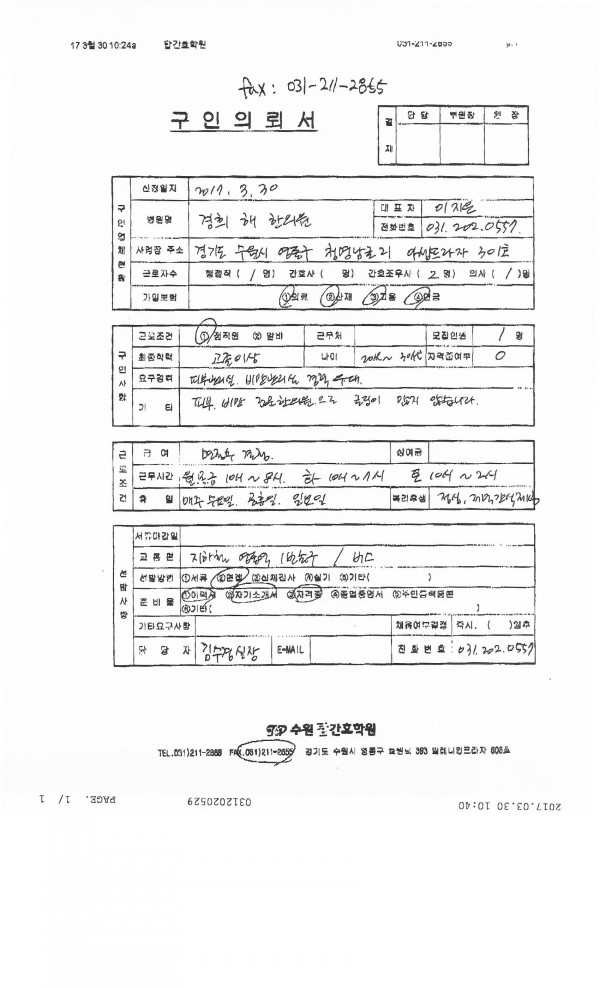 17 3월 30 10:24a 탑간호학원 031-211-2855 p.1
fax : 031-211-2855
구 인 의 뢰 서
결재 담 당 부원장 원 장
구인업체현황
신청일지 2017. 3. 30
병원명 경희 해 한의원 대 표 자 이지은
전화번호 031.202.0557
사업장 주소 경기도 수원시 영통구 청명남로 21 301호
근로자수 행정직 ( 1 명) 간호사 ( 명) 간호조무사 ( 2 명) 의사 ( 1 )명
가입보험 ①의료 ②산재 ③고용 ④연금
구인사항
근로조건 ①정직원 ② 알바 근무처 모집인원 1 명
최종학력 고졸이상 나이 20대 ~ 30대 자격증여부 O
요구경력 피부관리실. 비만관리실 경력 우대.
기 타 피부. 비만 전문한의원으로 환자가 많지 않습니다.
근로조건
급 여 면접후 결정. 상여금
근무시간 월.목.금 10시 ~ 8시. 화 10시 ~ 7시 토 10시 ~ 2시
휴 일 매주 수요일. 공휴일. 일요일 복리후생 점심,
선발사항
서류마감일
교 통 편 지하철 영통역 1번출구 / 버스
선발방법 ①서류 ②면접 ③신체검사 ④실기 ⑤기타( )
준 비 물 ①이력서 ②자기소개서 ③자격증 ④졸업증명서 ⑤주민등록등본
⑥기타( )
기타요구사항 채용여부결정 즉시. ( )일후
담 당 자 김수경실장 E-MAIL 전 화 번 호 : 031.202.0557
TOP 수원 탑간호학원
TEL.031)211-2868 FAX.031)211-2855 경기도 수원시 영통구 393 608호
2017.03.30 10:40 0312020529 PAGE. 1/ 1